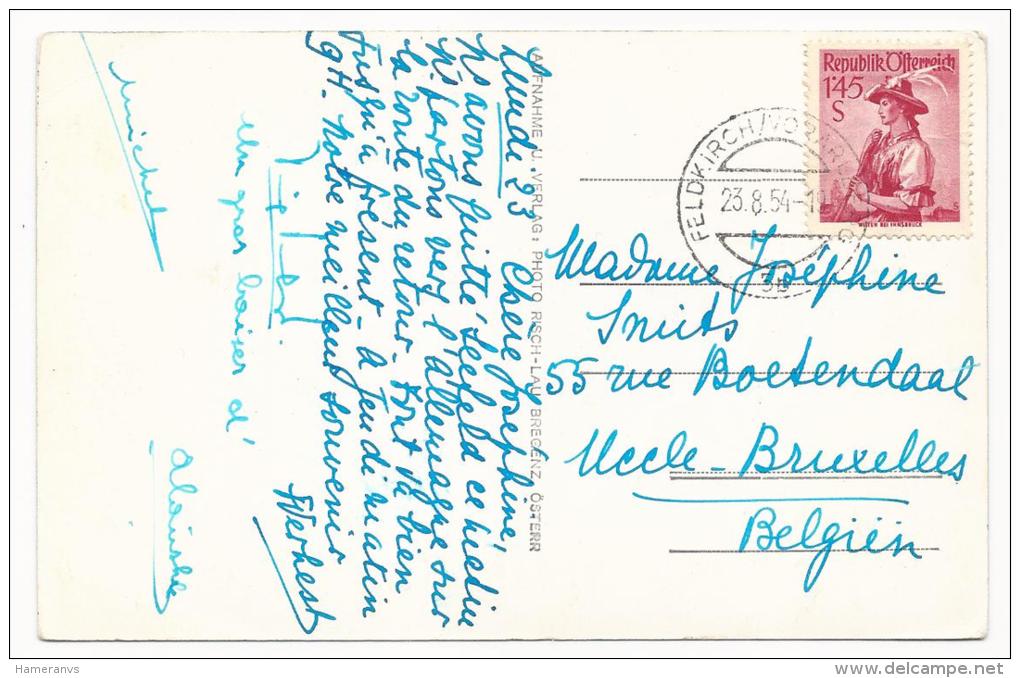 Lundi 23 Chère Josephine,
Ns avons quitté Seefeld ce midi
ns partons vers l'allemagne sur
la route du retour. Tont va bien
jusqu'à présent - à Jeudi matin
9H. Notre meilleur souvenir
JVerhest
Un gros baiser d'
michel
AUFNAHME U. VERLAG: PHOTO RISCH-LAU BREGENZ, ÖSTERR
Republik Österreich
1'45
S
WILTEN BEI INNSBRUCK
FELDKIRCH/VORARL
23.8.54-1
3b
Madame Joséphine
Smits
55 rue Boetendaal
Uccle - Bruxelles
Belgïen
Hameranvs
www.delcampe.net